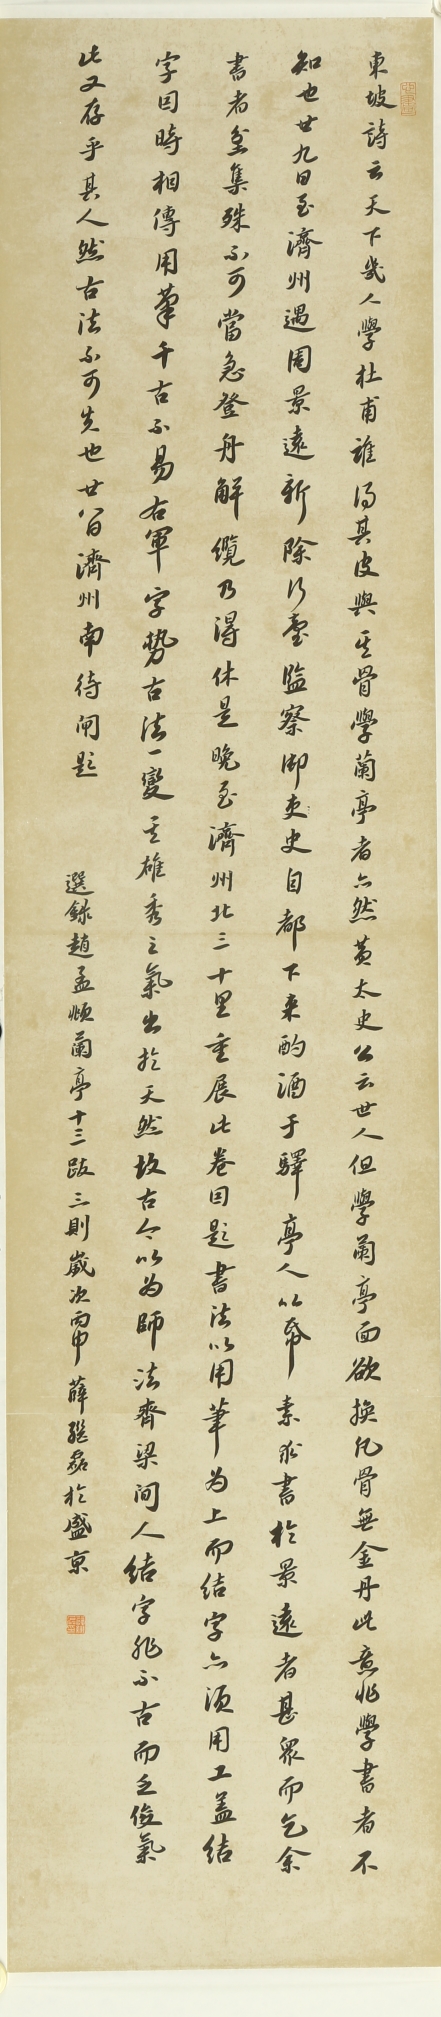 東坡詩云天下幾人學杜甫誰得其皮與其骨學蘭亭者亦然黃太史公云世人但學蘭亭面欲換凡骨無金丹此意非學書者不
知也廿九日至濟州遇周景遠新除行臺監察御吏史自都下來酌酒于驛亭人以帋素求書於景遠者甚眾而乞余
書者坌集殊不可當急登舟解纜乃得休是晚至濟州北三十里重展此卷因題書法以用筆為上而結字亦須用工蓋結
字因時相傳用筆千古不易右軍字勢古法一變其雄秀之氣出於天然故古今以為師法齊梁間人結字非不古而乏俊氣
此又存乎其人然古法不可失也廿八日濟州南待閘題
選錄趙孟頫蘭亭十三跋三則歲次丙申薛繼磊於盛京